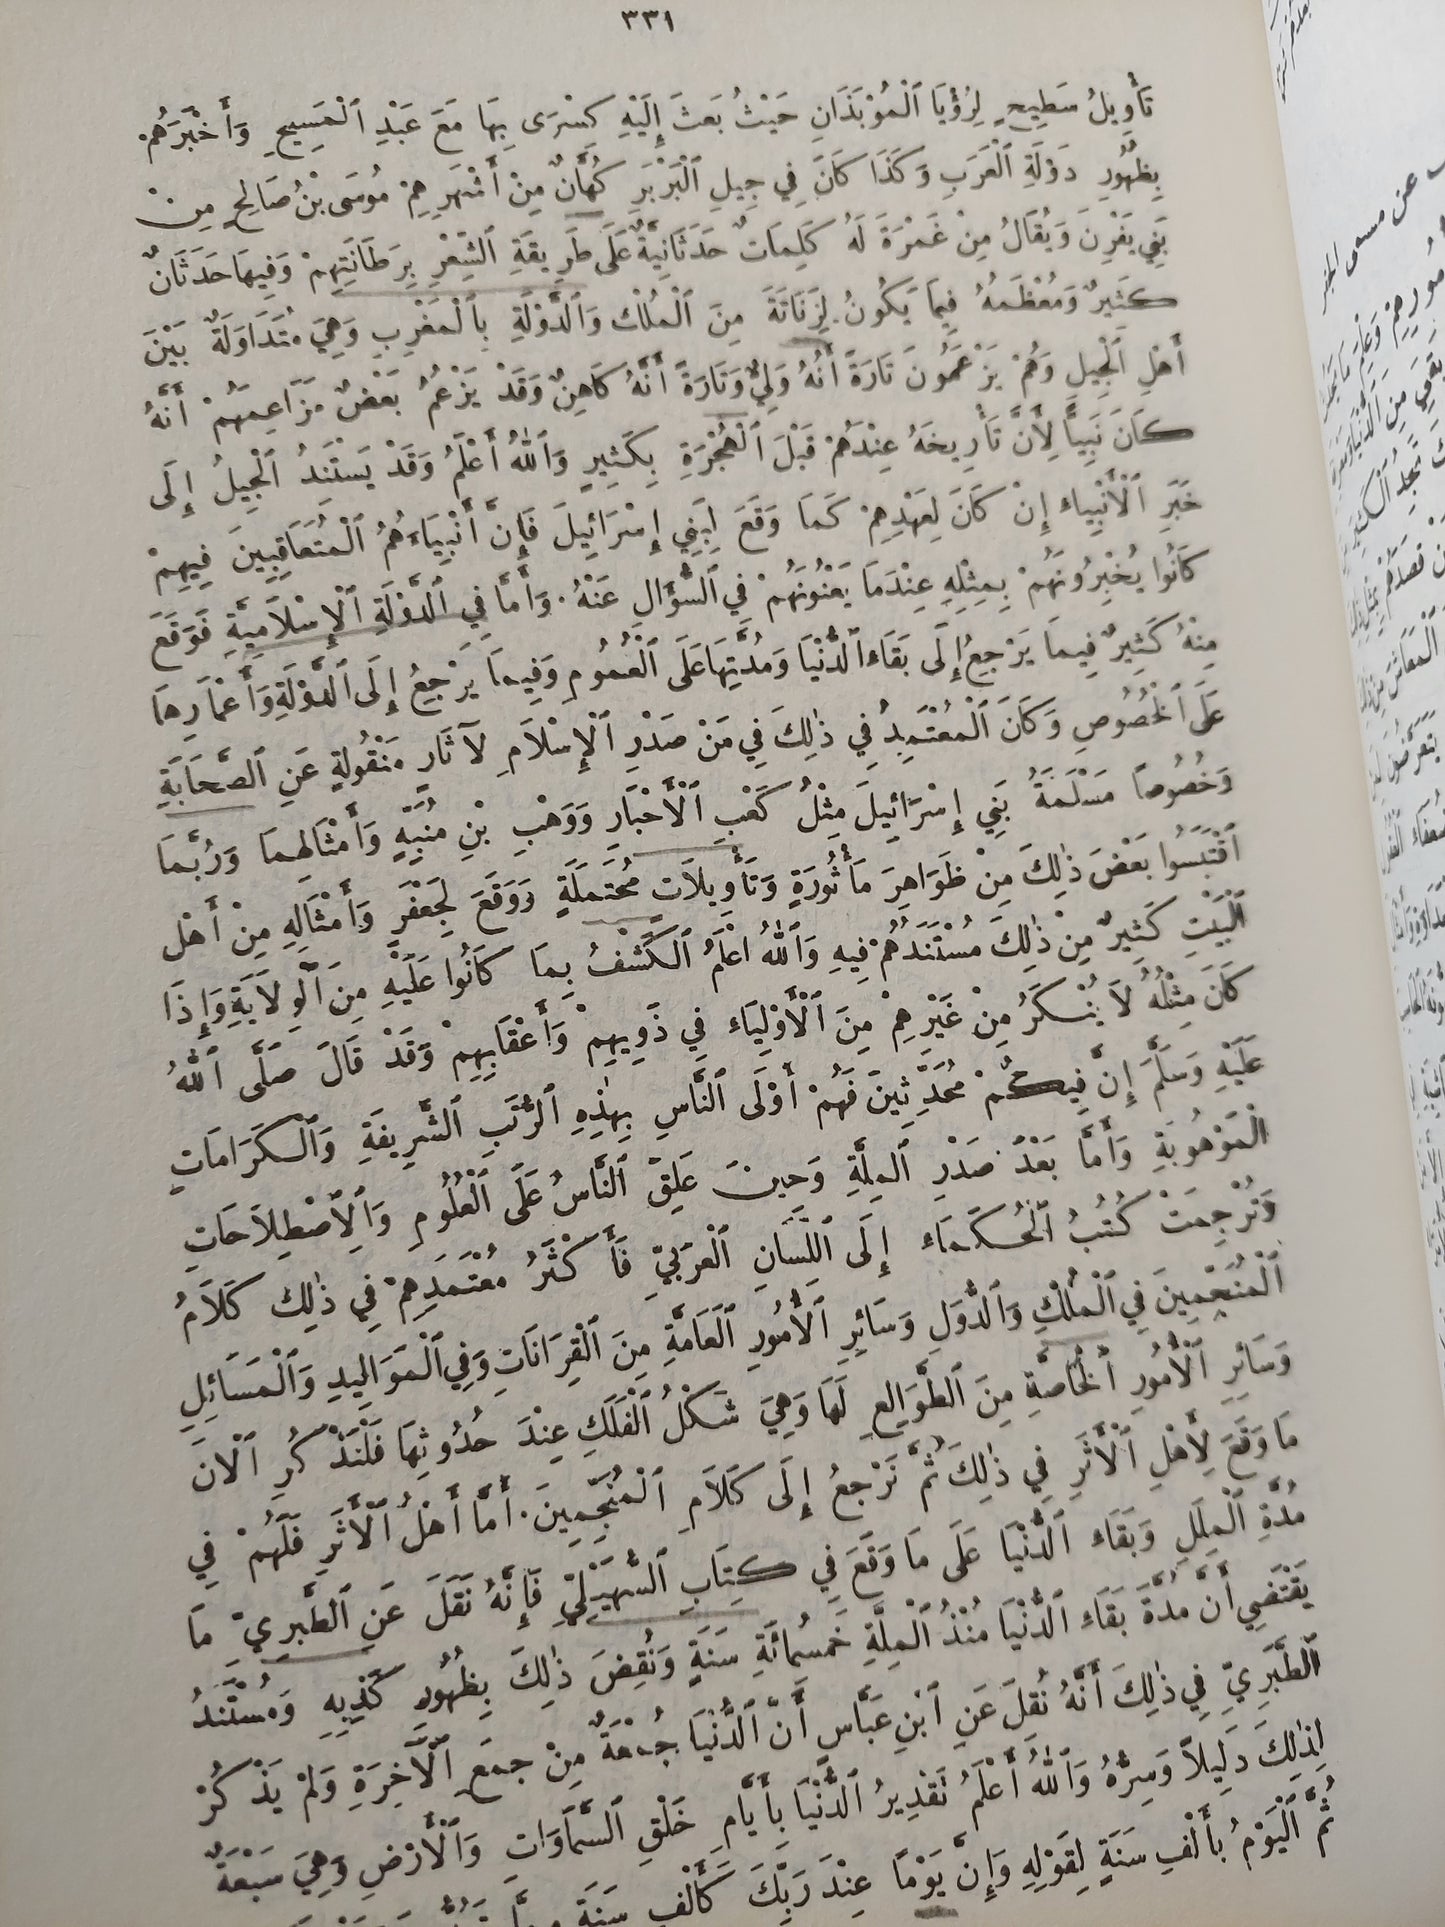 ٣٣١
تَأْوِيلُ سَطِيحٍ لِرُؤْيَا ٱلْمُوبَذَانِ حَيْثُ بَعَثَ إِلَيْهِ كِسْرَى بِهَا مَعَ عَبْدِ ٱلْمَسِيحِ وَأَخْبَرَهُمْ
بِظُهُورِ دَوْلَةِ ٱلْعَرَبِ وَكَذَا كَانَ فِي جِيلِ ٱلْبَرْبَرِ كُهَّانٌ مِنْ أَشْهَرِهِمْ مُوسَى بْنُ صَالِحٍ مِنْ
بَنِي يَفْرِنَ وَيُقَالُ مِنْ غَمْرَةَ لَهُ كَلِمَاتٌ حَدَثَانِيَّةٌ عَلَى طَرِيقَةِ ٱلشِّعْرِ بِرَطَانَتِهِمْ وَفِيهَا حَدَثَانٌ
كَثِيرٌ وَمُعْظَمُهُ فِيمَا يَكُونُ لِزَنَاتَةَ مِنَ ٱلْمُلْكِ وَٱلدَّوْلَةِ بِٱلْمَغْرِبِ وَهِيَ مُتَدَاوَلَةٌ بَيْنَ
أَهْلِ ٱلْجِيلِ وَهُمْ يَزْعَمُونَ تَارَةً أَنَّهُ وَلِيٌّ وَتَارَةً أَنَّهُ كَاهِنٌ وَقَدْ يَزْعُمُ بَعْضُ مَزَاعِمِهُمْ أَنَّهُ
كَانَ نَبِيًّا لِأَنَّ تَأْرِيخَهُ عِنْدَهُمْ قَبْلَ ٱلْهِجْرَةِ بِكَثِيرٍ وَٱللّٰهُ أَعْلَمُ وَقَدْ يَسْتَنِدُ ٱلْجِيلُ إِلَى
خَبَرِ ٱلْأَنْبِيَاء إِنْ كَانَ لِعَهْدِهِمْ كَمَا وَقَعَ لِبَنِي إِسْرَائِيلَ فَإِنَّ أَنْبِيَاءَهُمُ ٱلْمُتَعَاقِبِينَ فِيهِمْ
كَانُوا يُخْبِرُونَهُمْ بِمِثْلِهِ عِنْدَمَا يَعْنُونَهُمْ فِي ٱلسُّؤَالِ عَنْهُ. وَأَمَّا فِي ٱلدَّوْلَةِ ٱلْإِسْلَامِيَّةِ فَوَقَعَ
مِنْهُ كَثِيرٌ فِيمَا يَرْجِعُ إِلَى بَقَاء ٱلدُّنْيَا وَمُدَّتِهَا عَلَى ٱلْعُمُومِ وَفِيمَا يَرْجِعُ إِلَى ٱلدَّوْلَةِ وَأَعْمَارِهَا
عَلَى ٱلْخُصُوصِ وَكَانَ ٱلْمُعْتَمِدُ فِي ذٰلِكَ فِي مَنْ صَدْرِ ٱلْإِسْلَامِ لآثَارٍ مَنْقُولَةٍ عَنِ ٱلصَّحَابَةِ
وَخُصُوصًا مَسْلَمَةُ بَنِي إِسْرَائِيلَ مِثْلُ كَعْبِ ٱلْأَحْبَارِ وَوَهْبِ بْنِ مُنَبِّهٍ وَأَمْثَالِهِمَا وَرُبَّمَا
ٱقْتَبَسُوا بَعْضَ ذٰلِكَ مِنْ ظَوَاهِرَ مَأْثُورَةٍ وَتَأْوِيلَاتٍ مُحْتَمَلَةٍ وَوَقَعَ لِجَعْفَرٍ وَأَمْثَالِهِ مِنْ أَهْلِ
ٱلْبَيْتِ كَثِيرٌ مِنْ ذٰلِكَ مُسْتَنَدُهُمْ فِيهِ وَٱللّٰهُ اعْلَمُ ٱلْكَشْفُ بِمَا كَانُوا عَلَيْهِ مِنَ ٱلْوِلَايَةِ وَإِذَا
كَانَ مِثْلُهُ لَا يُنْكَرُ مِنْ غَيْرِهِمْ مِنَ ٱلْأَوْلِيَاء فِي ذَوِيهِمْ وَأَعْقَابِهِمْ وَقَدْ قَالَ صَلَّى ٱللّٰهُ
عَلَيْهِ وَسَلَّمَ إِنَّ فِيكُمْ مُحَدَّثِينَ فَهُمْ أَوْلَى ٱلنَّاسِ بِهٰذِهِ ٱلرُّتَبِ ٱلشَّرِيفَةِ وَٱلْكَرَامَاتِ
الْمَوْهُوبَةِ وَأَمَّا بَعْدَ صَدْرِ ٱلْمِلَّةِ وَحِينَ عَلِقَ ٱلنَّاسُ عَلَى ٱلْعُلُومِ وَٱلِٱصْطِلَاحَاتِ
وَتُرْجِمَتْ كُتُبُ ٱلْحُكَمَاء إِلَى ٱللِّسَانِ ٱلْعَرَبِيِّ فَأَكْثَرُ مُعْتَمَدِهِمْ فِي ذٰلِكَ كَلَامُ
ٱلْمُنَجِّمِينَ فِي ٱلْمُلْكِ وَٱلدُّوَلِ وَسَائِرِ ٱلْأُمُورِ ٱلْعَامَّةِ مِنَ ٱلْقِرَانَاتِ وَفِي ٱلْمَوَالِيدِ وَٱلْمَسَائِلِ
وَسَائِرِ ٱلْأُمُورِ ٱلْخَاصَّةِ مِنَ ٱلطَّوَالِعِ لَهَا وَهِيَ شَكْلُ ٱلْفَلَكِ عِنْدَ حُدُوثِهَا فَلْنَذْكُرِ ٱلْآنَ
مَا وَقَعَ لِأَهْلِ ٱلْأَثَرِ فِي ذٰلِكَ ثُمَّ نَرْجِعُ إِلَى كَلَامِ ٱلْمُنَجِّمِينَ. أَمَّا أَهْلُ ٱلْأَثَرِ فَلَهُمْ فِي
مُدَّةِ ٱلْمِلَلِ وَبَقَاء ٱلدُّنْيَا عَلَى مَا وَقَعَ فِي كِتَابِ ٱلسُّهَيْلِيِّ فَإِنَّهُ نَقَلَ عَنِ ٱلطَّبَرِيِّ مَا
يَقْتَضِي أَنَّ مُدَّةَ بَقَاء ٱلدُّنْيَا مُنْذُ ٱلْمِلَّةِ خَمْسُمِائَةِ سَنَةٍ وَنُقِضَ ذٰلِكَ بِظُهُورِ كَذِبِهِ وَمُسْتَنَدُ
ٱلطَّبَرِيِّ فِي ذٰلِكَ أَنَّهُ نُقِلَ عَنِ ٱبْنِ عَبَّاسٍ أَنَّ ٱلدُّنْيَا جُمْعَةٌ مِنْ جمعِ ٱلْآخِرَةِ وَلَمْ يَذْكُرْ
لِذٰلِكَ دَلِيلًا وَسِرُّهُ وَٱللّٰهُ أَعْلَمُ تَقْدِيرُ ٱلدُّنْيَا بِأَيَّامِ خَلْقِ ٱلسَّمَاوَاتِ وَٱلْأَرْضِ وَهِيَ سَبْعَةٌ
ثُمَّ ٱلْيَوْمُ بِأَلْفِ سَنَةٍ لِقَوْلِهِ وَإِنَّ يَوْمًا عِنْدَ رَبِّكَ كَأَلْفِ سَنَةٍ